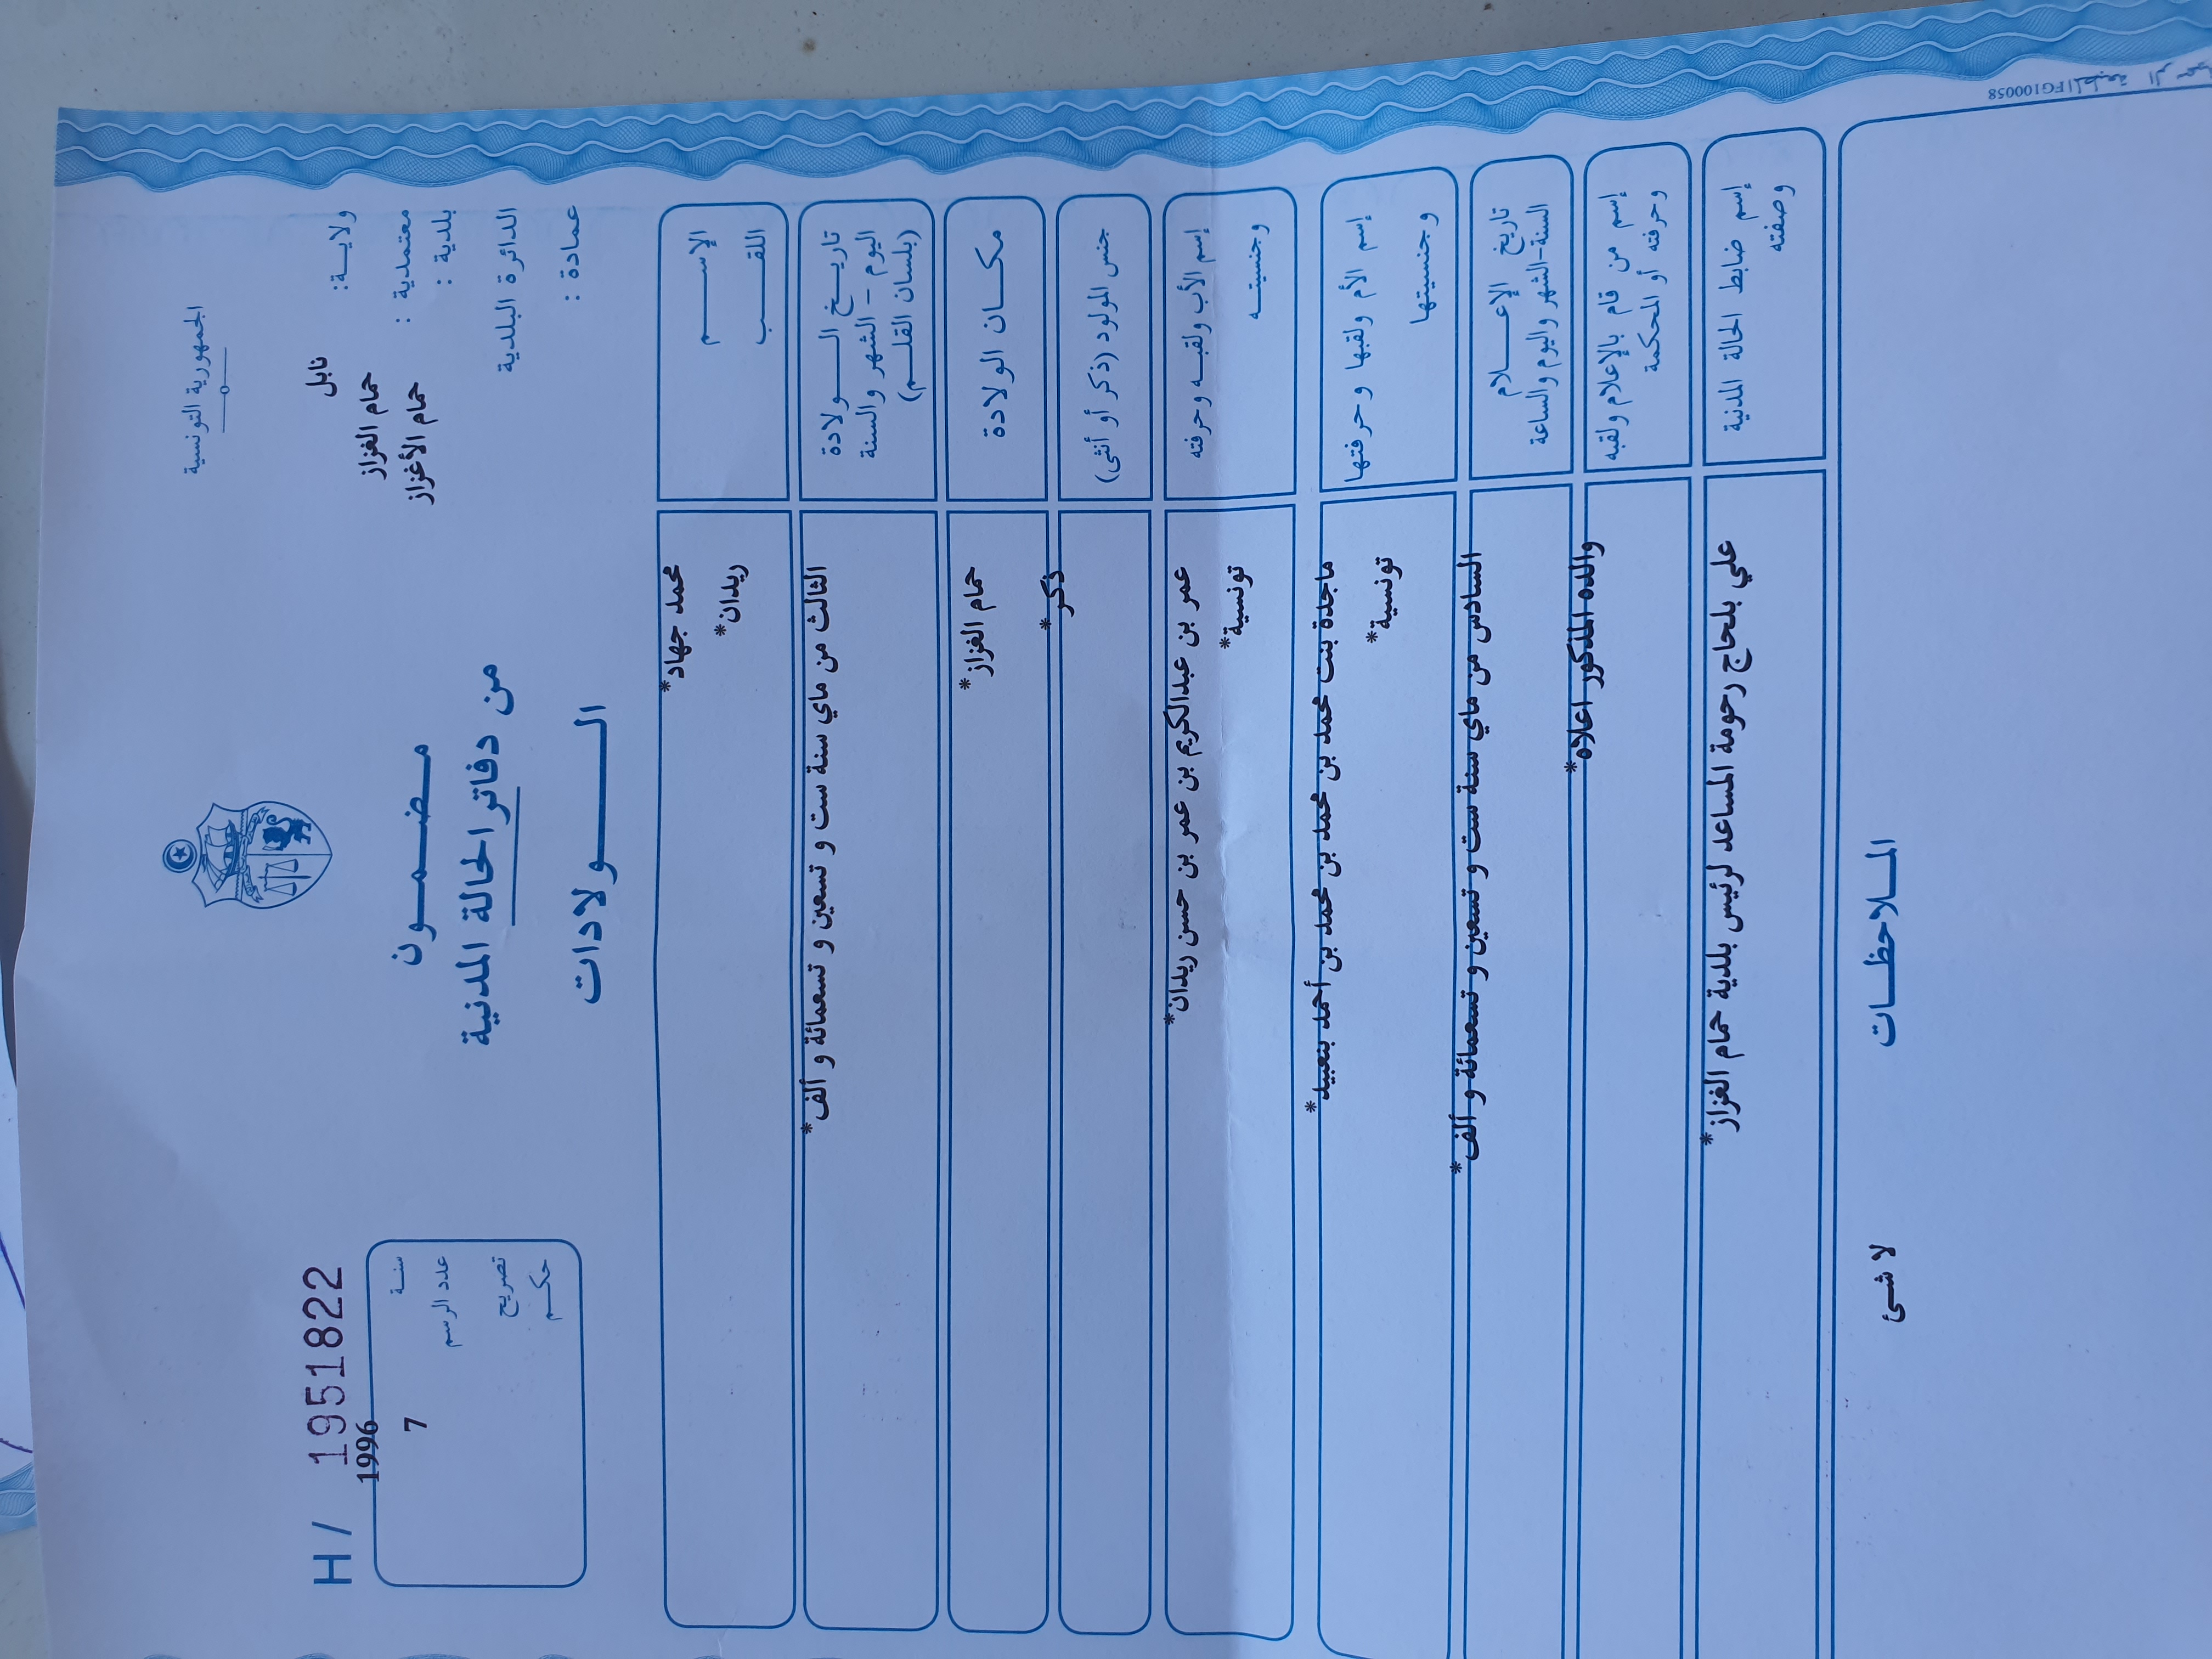 الجمهورية التونسية
ولايـة: نابل
معتمدية : حمام الغزاز
بلدية : حمام الأغزاز
الدائرة البلدية
عمادة :
مـضـمـون
من دفاتر الحالة المدنية
الـولادات
H / 1951822
سنـة 1996
عدد الرسم 7
تصريح
حكـم
الإسـم محمد جهاد*
اللقـب ريدان*
تاريـخ الـولادة
اليوم - الشهر والسنة
(بلسان القلـم)
الثالث من ماي سنة ست و تسعين و تسعمائة و ألف*
مكـان الولادة حمام الغزاز*
جنس المولود (ذكر أو أنثى) ذكر*
إسم الأب ولقبـه وحرفته عمر بن عبدالكريم بن عمر بن حسن ريدان*
وجنسيتـه تونسية*
إسم الأم ولقبها وحرفتها ماجدة بنت محمد بن محمد بن محمد بن أحمد بنعبيد*
وجنسيتها تونسية*
تاريخ الإعـلام
السنة-الشهر واليوم والساعة
السادس من ماي سنة ست و تسعين و تسعمائة و ألف*
إسم من قام بالإعلام ولقبه
وحرفته أو المحكمة
والده المذكور اعلاه*
إسم ضابط الحالة المدنية
وصفته
علي بلحاج رحومة المساعد لرئيس بلدية حمام الغزاز*
المـلاحظـات
لا شئ
FG100058 المطبعة الرسمية